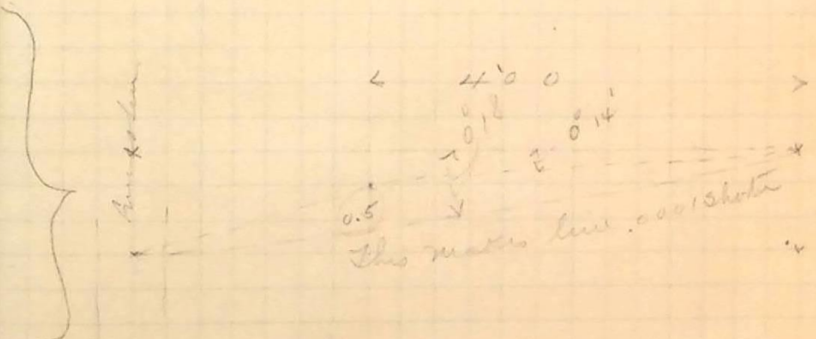 4'00
0°18'
0°14'
0.5
This makes line .0001 shorter